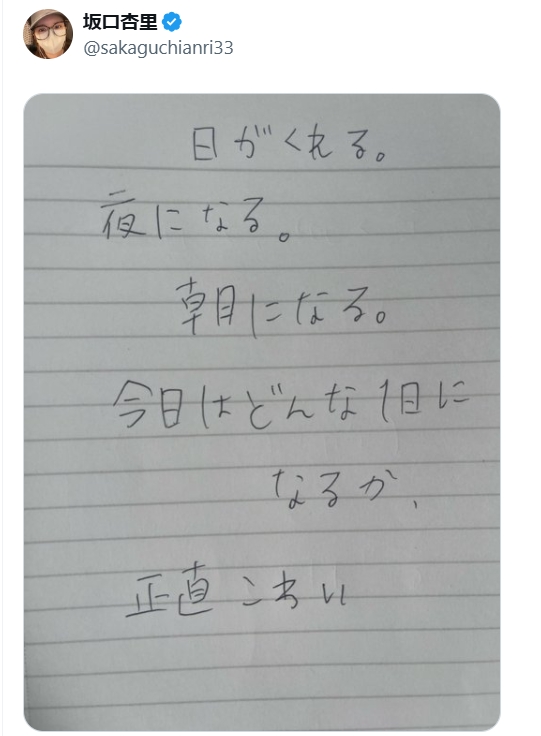 坂口杏里
@sakaguchianri33
日がくれる。
夜になる。
朝になる。
今日はどんな1日に
なるか、
正直こわい